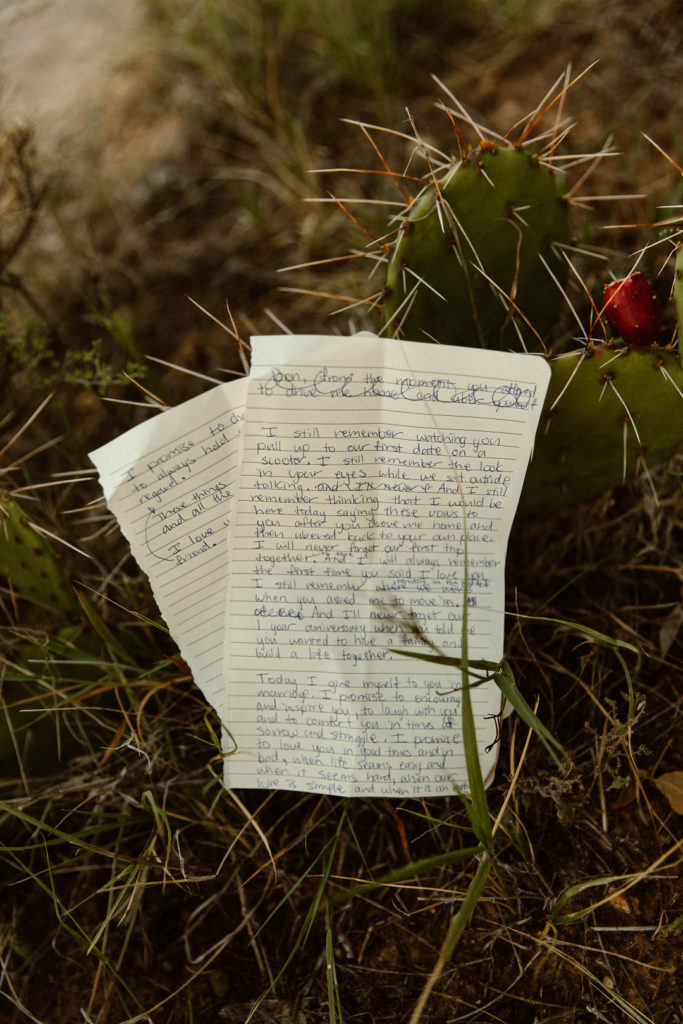 Don, from the moment you offered
to drive me home and uber yourself
I still remember watching you
pull up to our first date on a
scooter. I still remember the look
in your eyes while we sat outside
talking. and I'll never f And I still
remember thinking that I would be
here today saying these vows to
you after you drove me home and
then ubered back to your own place.
I will never forget our first trip
together. And I will always remember
the first time you said I love you.
I still remember where we were
when you asked me to move in.
And I'll never forget our
1 year aniversary when you told me
you wanted to have a family and
build a life together.
Today I give myself to you in
marriage. I promise to encourage
and inspire you, to laugh with you
and to comfort you in times of
sorrow and struggle. I promise
to love you in good times and in
bad, when life seams easy and
when it seems hard, when our
love is simple and when it is an
I promise to
to always hold
regard.
These things
and all the
I love